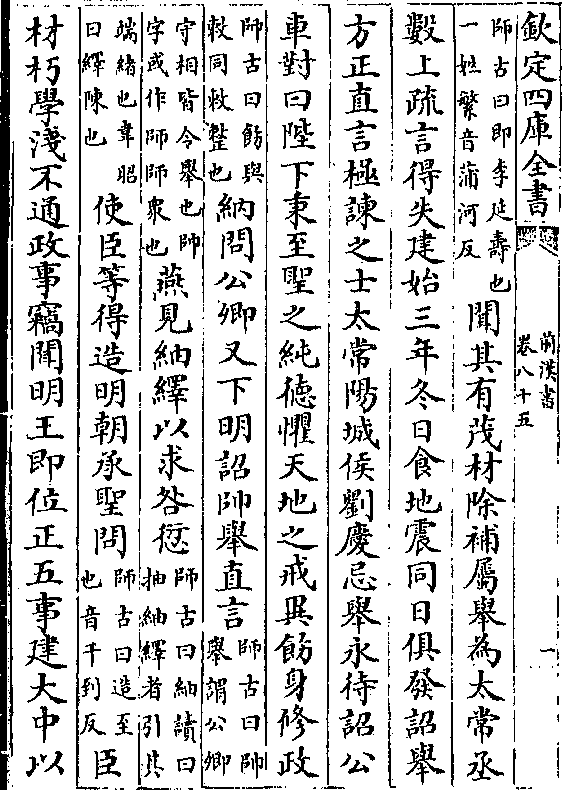 欽定四庫全書
前漢書
卷八十五
一
師古曰即李延壽也
一姓繁音蒲河反
聞其有茂材除補屬舉為太常丞
數上疏言得失建始三年冬日食地震同日俱發詔舉
方正直言極諫之士太常陽城侯劉慶忌舉永待詔公
車對曰陛下秉至聖之純德懼天地之戒異飭身修政
師古曰飭與
敕同敕整也
納問公卿又下明詔帥舉直言
師古曰帥
舉謂公卿
守相皆令舉也帥
字或作師師衆也
燕見紬繹以求咎愆
師古曰紬讀曰
抽紬繹者引其
端緒也韋昭
曰繹陳也
使臣等得造明朝承聖問
師古曰造至
也音千到反
臣
材朽學淺不通政事竊聞明王即位正五事建大中以